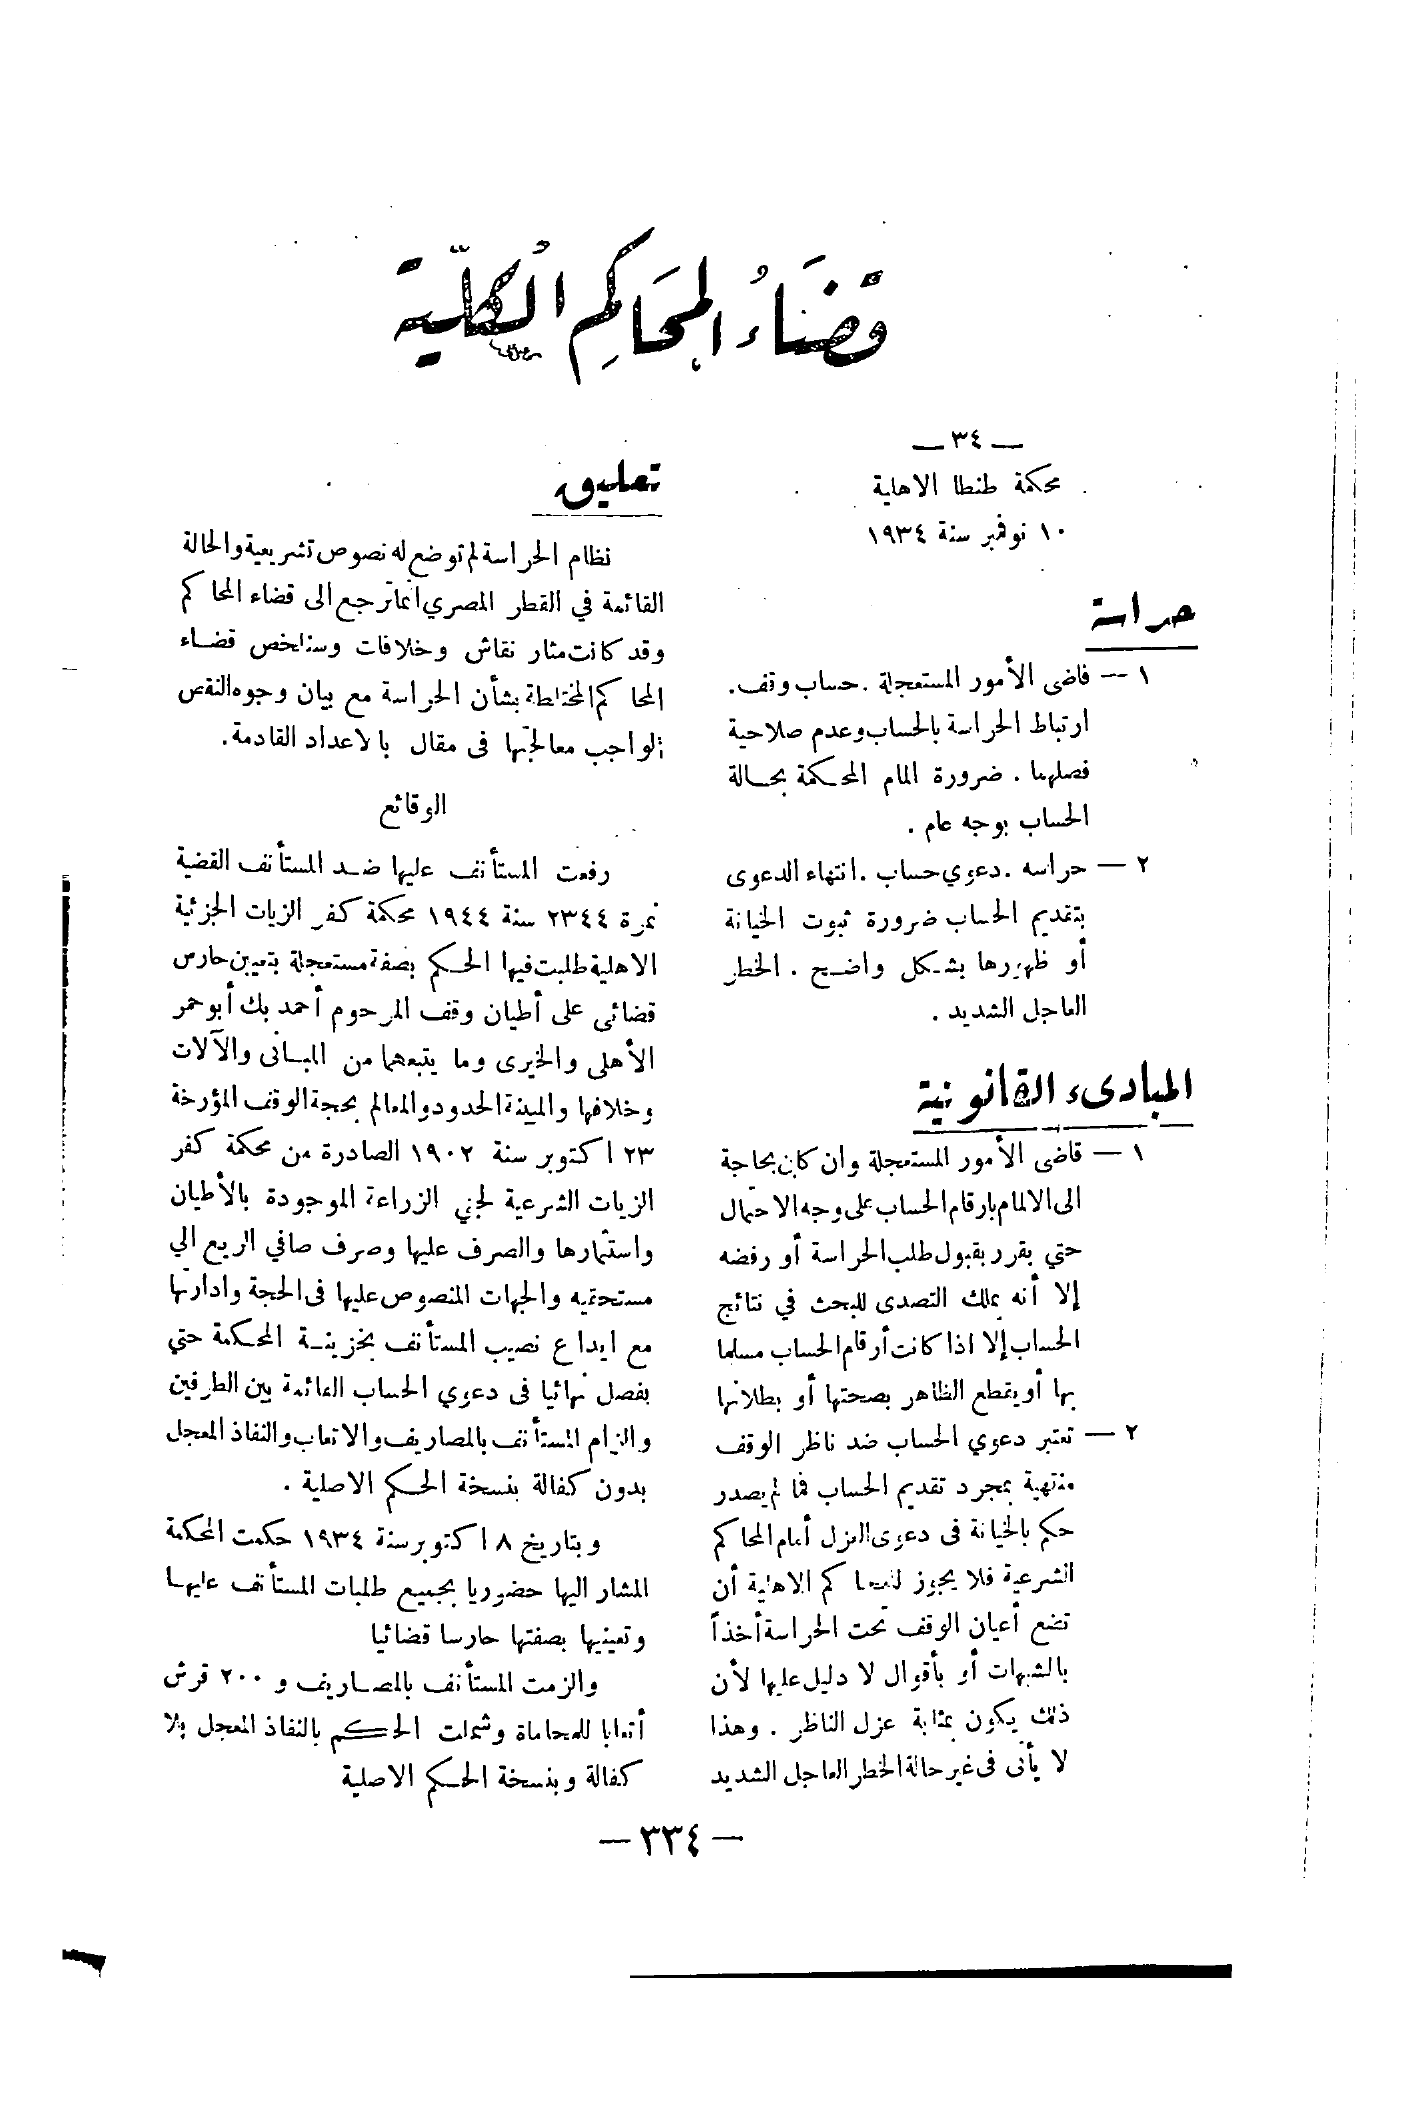 قضَاءُ المحَاكِم الكُليّة
— ٣٤ —
محكمة طنطا الاهلية
١٠ نوفمبر سنة ١٩٣٤
حراسة
١ — قاضى الأمور المستعجلة . حساب وقف .
ارتباط الحراسة بالحساب وعدم صلاحية
فصلهما . ضرورة المام المحكمة بحالة
الحساب بوجه عام .
٢ — حراسه . دعوي حساب . انتهاء الدعوى
بتقديم الحساب ضرورة ثبوت الخيانة
أو ظهورها بشكل واضح . الخطر
العاجل الشديد .
المبادىء القانونية
١ — قاضى الأمور المستعجلة وان كان بحاجة
الى الالمام بارقام الحساب على وجه الاحتمال
حتي يقرر بقبول طلب الحراسة أو رفضه
إلا أنه يملك التصدى للبحث في نتائج
الحساب إلا اذا كانت أرقام الحساب مسلما
بها أو يقطع الظاهر بصحتها أو بطلانها
٢ — تعتبر دعوي الحساب ضد ناظر الوقف
منتهية بمجرد تقديم الحساب فما لم يصدر
حكم بالخيانة فى دعوى العزل أمام المحاكم
الشرعية فلا يجوز للمحاكم الاهلية أن
تضع أعيان الوقف تحت الحراسة أخذاً
بالشبهات أو بأقوال لا دليل عليها لأن
ذلك يكون بمثابة عزل الناظر . وهذا
لا يأتى فى غير حالة الخطر العاجل الشديد
تعليق
نظام الحراسة لم توضع له نصوص تشريعية والحالة
القائمة في القطر المصري انما ترجع الى قضاء المحاكم
وقد كانت مثار نقاش وخلافات وسنلخص قضاء
المحاكم المختلطة بشأن الحراسة مع بيان وجوه النقص
الواجب معالجتها فى مقال بالاعداد القادمة .
الوقائع
رفعت المستأنف عليها ضد المستأنف القضية
نمرة ٢٣٤٤ سنة ١٩٤٤ محكمة كفر الزيات الجزئية
الاهلية طلبت فيها الحكم بصفة مستعجلة بتعيين حارس
قضائى على أطيان وقف المرحوم أحمد بك أبو حمر
الأهلى والخيرى وما يتبعهما من المبانى والآلات
وخلافها والمبينة الحدود والمعالم بحجة الوقف المؤرخة
٢٣ اكتوبر سنة ١٩٠٢ الصادرة من محكمة كفر
الزيات الشرعية لجني الزراعة الموجودة بالأطيان
واستثمارها والصرف عليها وصرف صافي الريع الي
مستحقيه والجهات المنصوص عليها فى الحجة وادارتها
مع ايداع نصيب المستأنف بخزينة المحكمة حتي
يفصل نهائيا فى دعوي الحساب القائمة بين الطرفين
والزام المستأنف بالمصاريف والاتعاب والنفاذ المعجل
بدون كفالة بنسخة الحكم الاصلية .
وبتاريخ ٨ اكتوبر سنة ١٩٣٤ حكمت المحكمة
المشار اليها حضوريا بجميع طلبات المستأنف عليها
وتعيينها بصفتها حارسا قضائيا
والزمت المستأنف بالمصاريف و ٢٠٠ قرش
أتعابا للمحاماة وشملت الحكم بالنفاذ المعجل بلا
كفالة وبنسخة الحكم الاصلية
— ٣٣٤ —